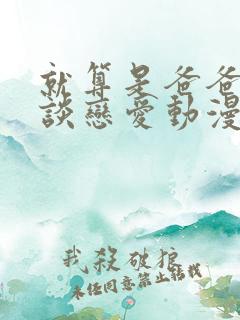 就算是爸爸
談戀愛動漫
我殺破狼
未经同意禁止转载